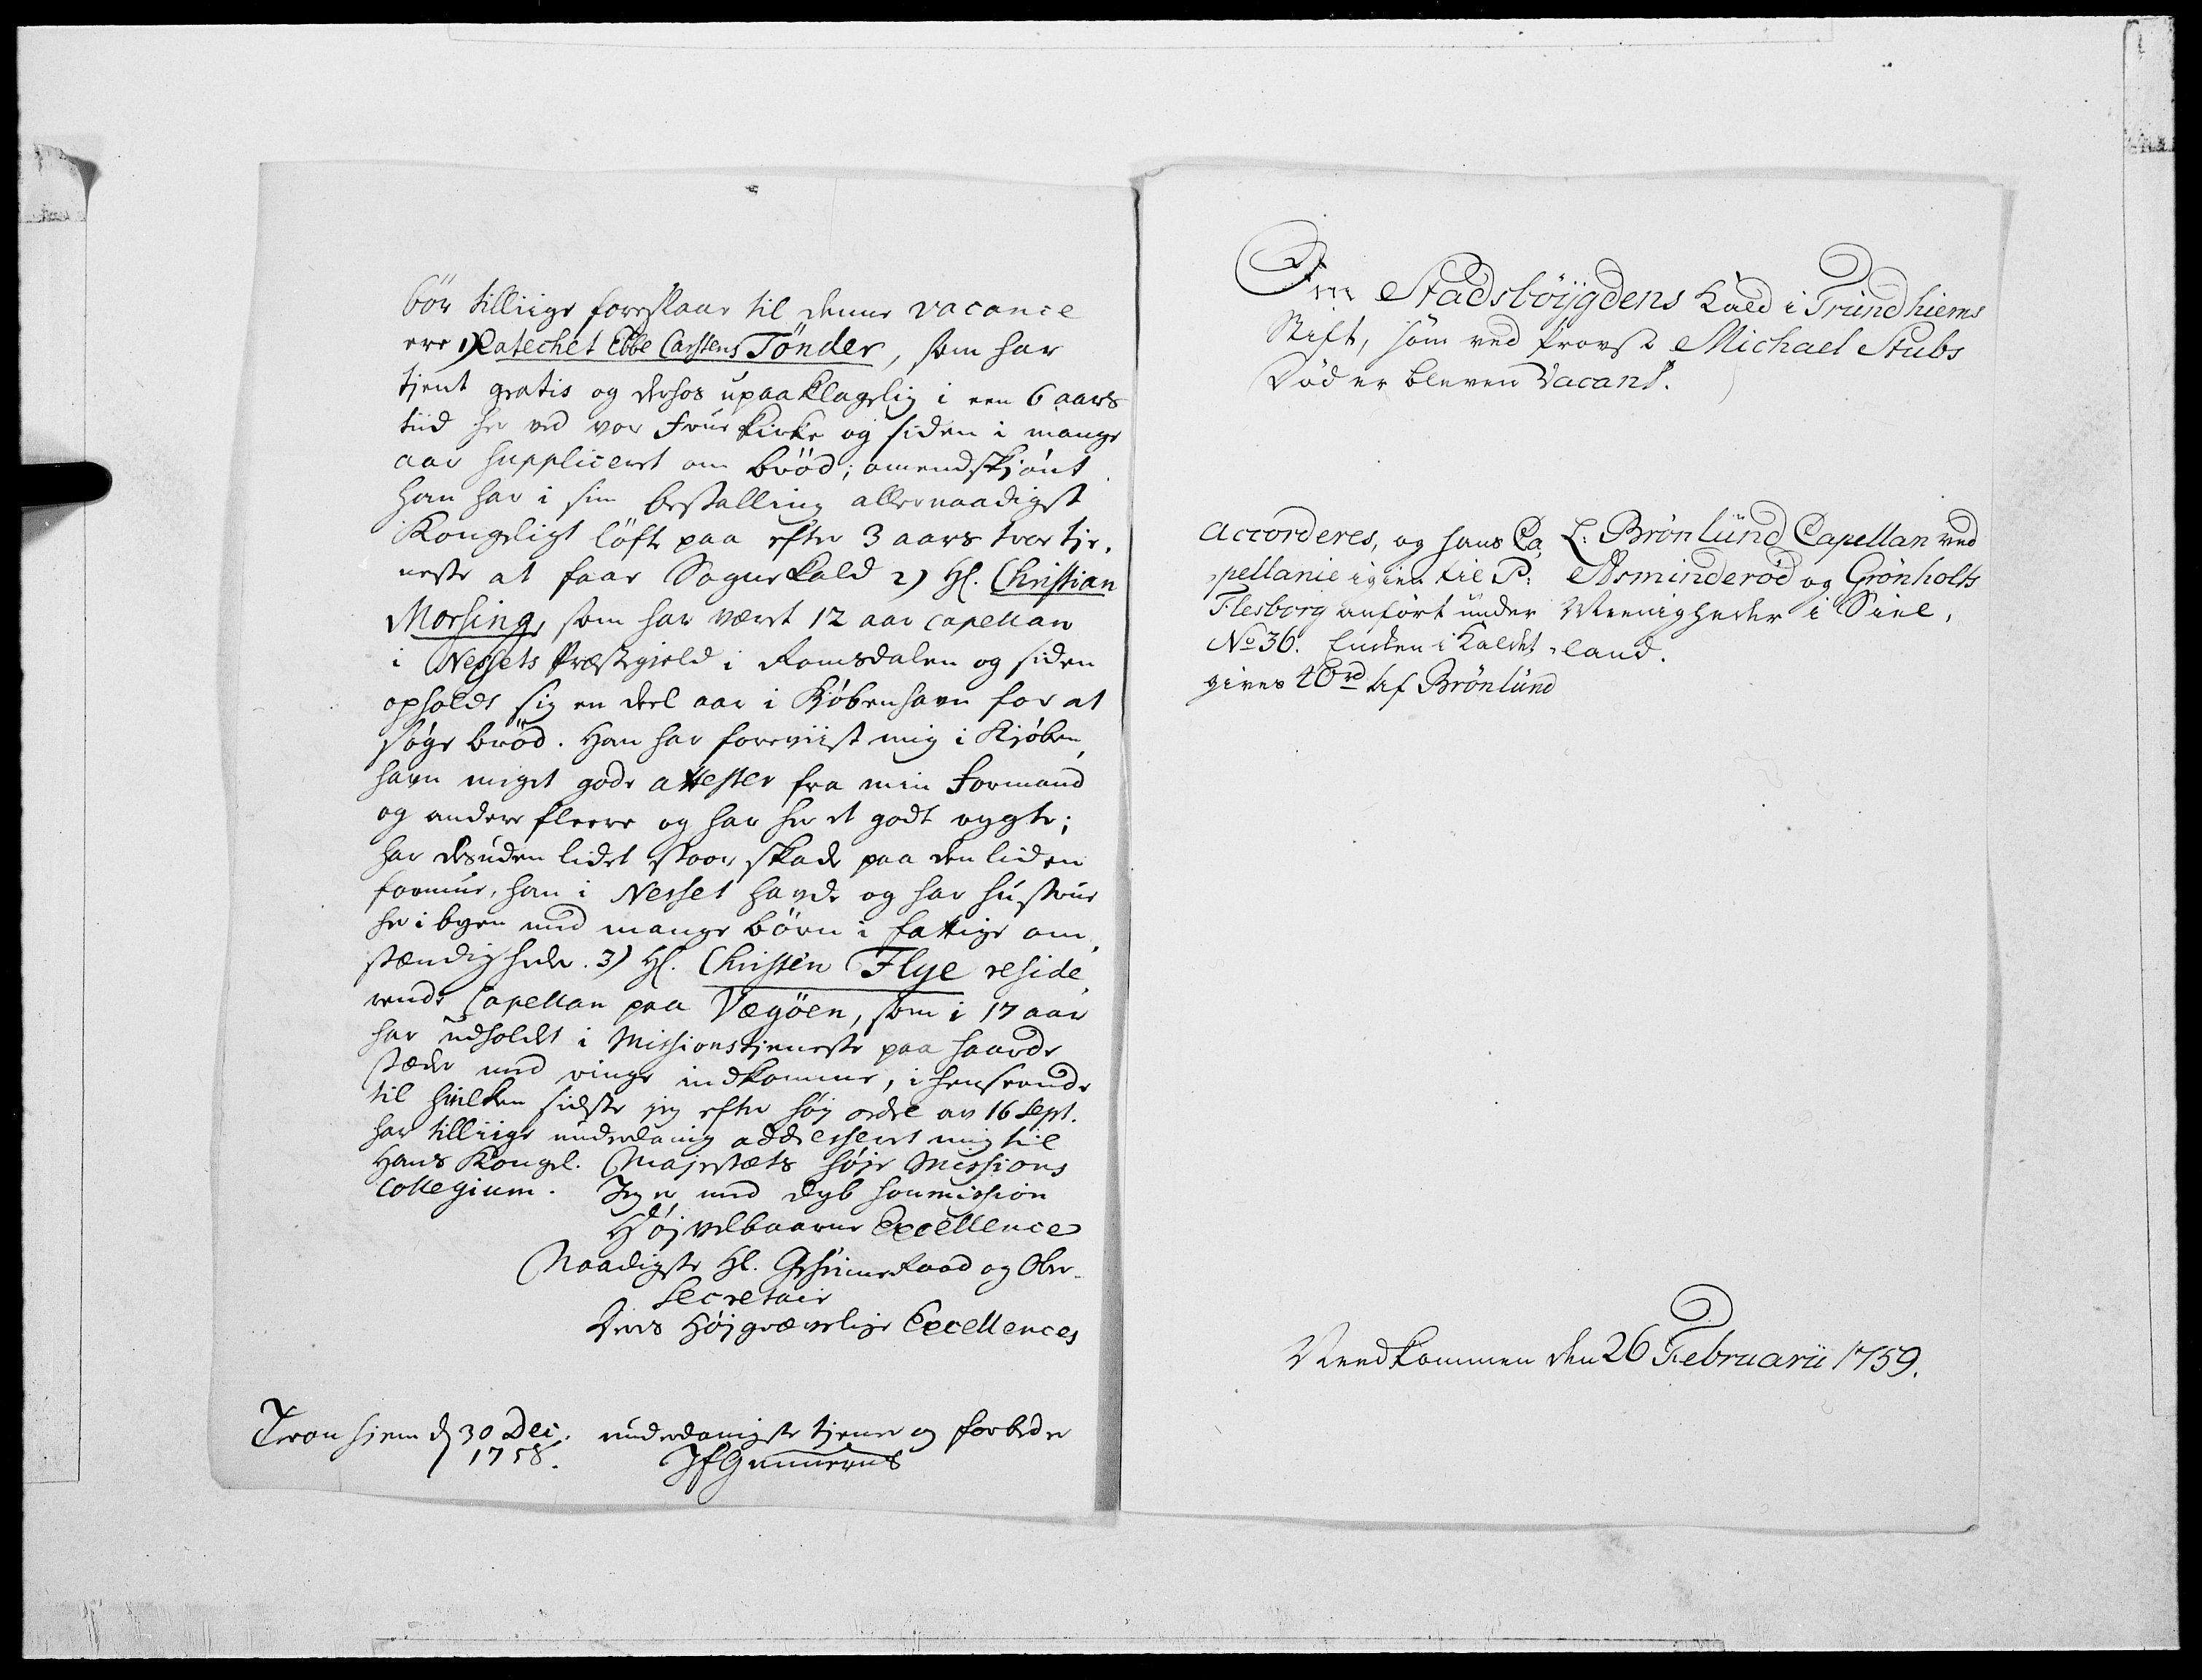 bör tilliige foreslaaes til denne vacance
ere 1) Catechet Ebbe Carstens Tönder, som har
tjent gratis og derhos upaaklagelig i een 6 aars
tiid her ved vor Frue kirke og siden i mange
aar suppliceret om bröd; omendskjönt
han har i sin bestalling allernaadigst
Kongeligt löfte paa efter 3 aars troe tje,
neste at faae Sogne kald 2) Hr. Christian
Morsing, som har været 12 aar capellan
i Nessets Præstegield i Romsdalen og siden
opholdt sig en deel aar i Kjöbenhavn for at
söge bröd. Han har foreviist mig i Kjöben,
havn meget gode attester fra min Formand
og andre fleere og har her et godt rygte;
har desuden lidet stoor skade paa den liden
formue, han i Nesset havde og har hustrue
her i byen med mange börn i fattige om,
stændigheder. 3) Hr. Christen Flye reside,
rende Capellan paa Vegöen, som i 17 aar
har udholdet i Missionstjeneste paa haarde
stæder med ringe indkomme, i henseende
til hvilken sidste jeg efter höj ordre av 16 Sept.
har tilliige underdanig addresseret mig til
Hans Kongel. Majestæts höje Missions
Collegium. Jeg er med dyb soumission
Höjvelbaarne Excellence
Naadigste Hr. Geheimeraad og Ober-
Secretair
Deres Höjgrævelige Excellences
Tronhiem d. 30 Dec. underdanigste tjener og forbeder
1758. JEGunnerus
Om Stadsböÿgdens Kald i Trundhiems
Stift, som ved Provst Michael Stubs
Död er bleven Vacant.
accorderes, og hans Ca, L: Brönlünd Capellan ved
pellanie igien til P: Asminderöd og Grönholts
Flesborg anfört under Meenigheder i Siel,
No 36. Enken i Kaldet land.
gives 40 rd af Brönlünd
Needkommen den 26 Februarii 1759.